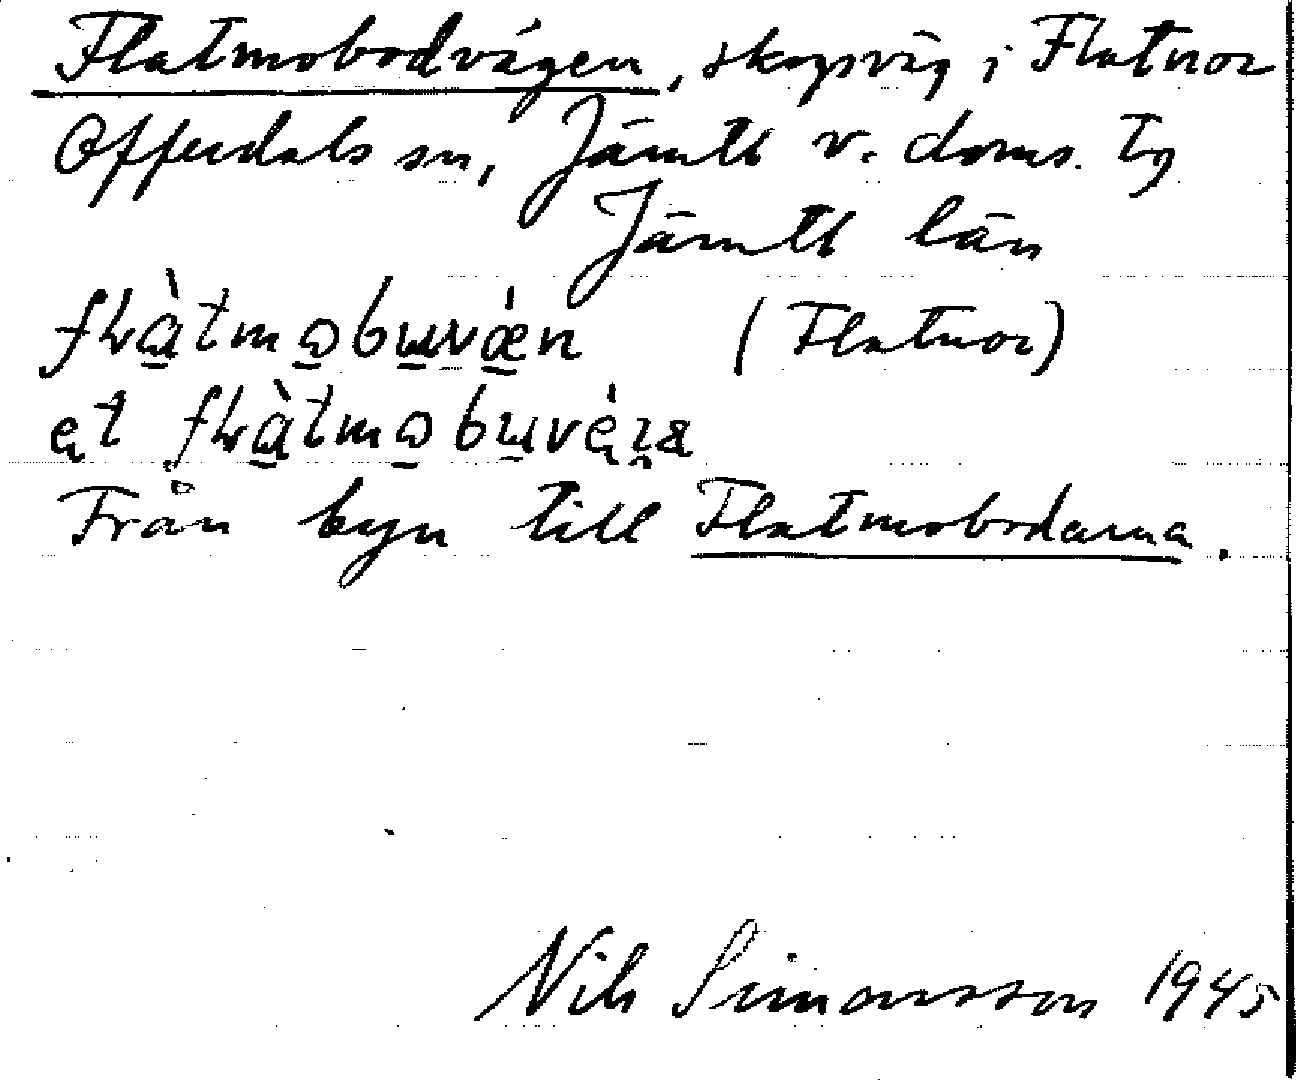 Flatmobodvägen, skogsväg i Flatnor
Offerdals sn, Jämtl v. doms. tg
Jämtl län
(Flatnor)
Från byn till Flatmobodarna.
Nils Simonsson 1945